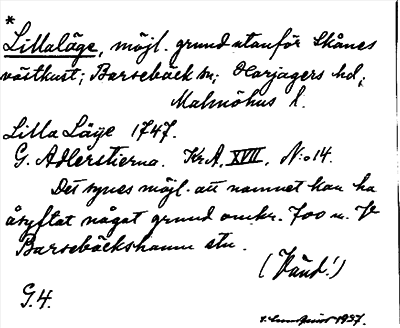 *
Lillaläge, möjl. grund utanför Skånes
västkust; Barsebäck sn; Harjagers hd;
Malmöhus l.
Lilla Läge 1747.
G. Adlerstierna. Kr.A. XVII, N:o 14.
Det synes möjl. att namnet kan ha
åsyftat något grund omkr. 700 m. V
Barsebäckshamn stn.
(Vänd!)
G.4.
1937.